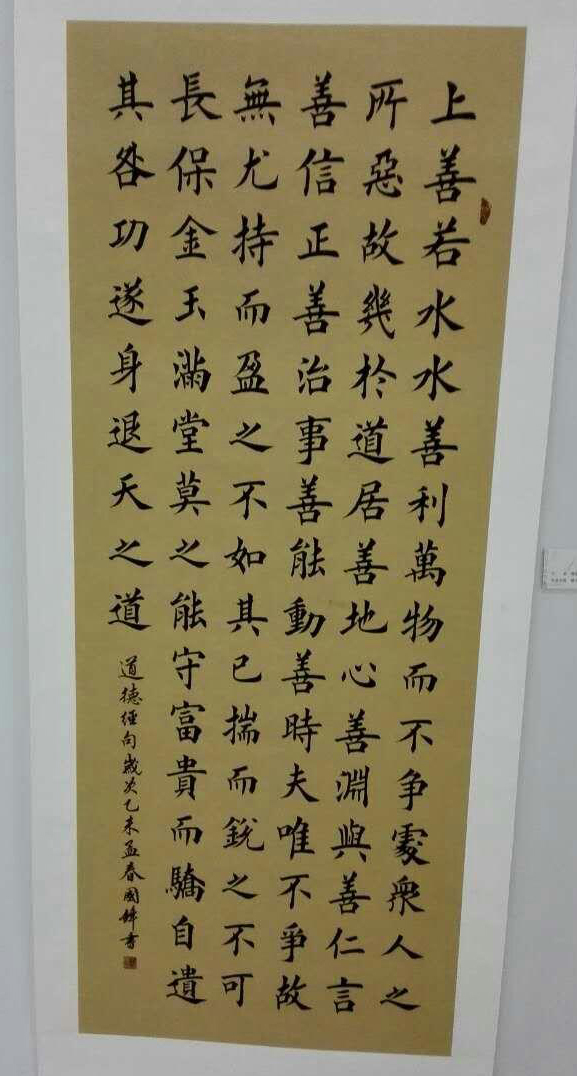 上善若水水善利萬物而不争處衆人之
所惡故幾於道居善地心善淵與善仁言
善信正善治事善能動善時夫唯不爭故
無尤持而盈之不如其已揣而銳之不可
長保金玉滿堂莫之能守富貴而驕自遺
其咎功遂身退天之道
道德經句歲次乙未孟春國鋒書